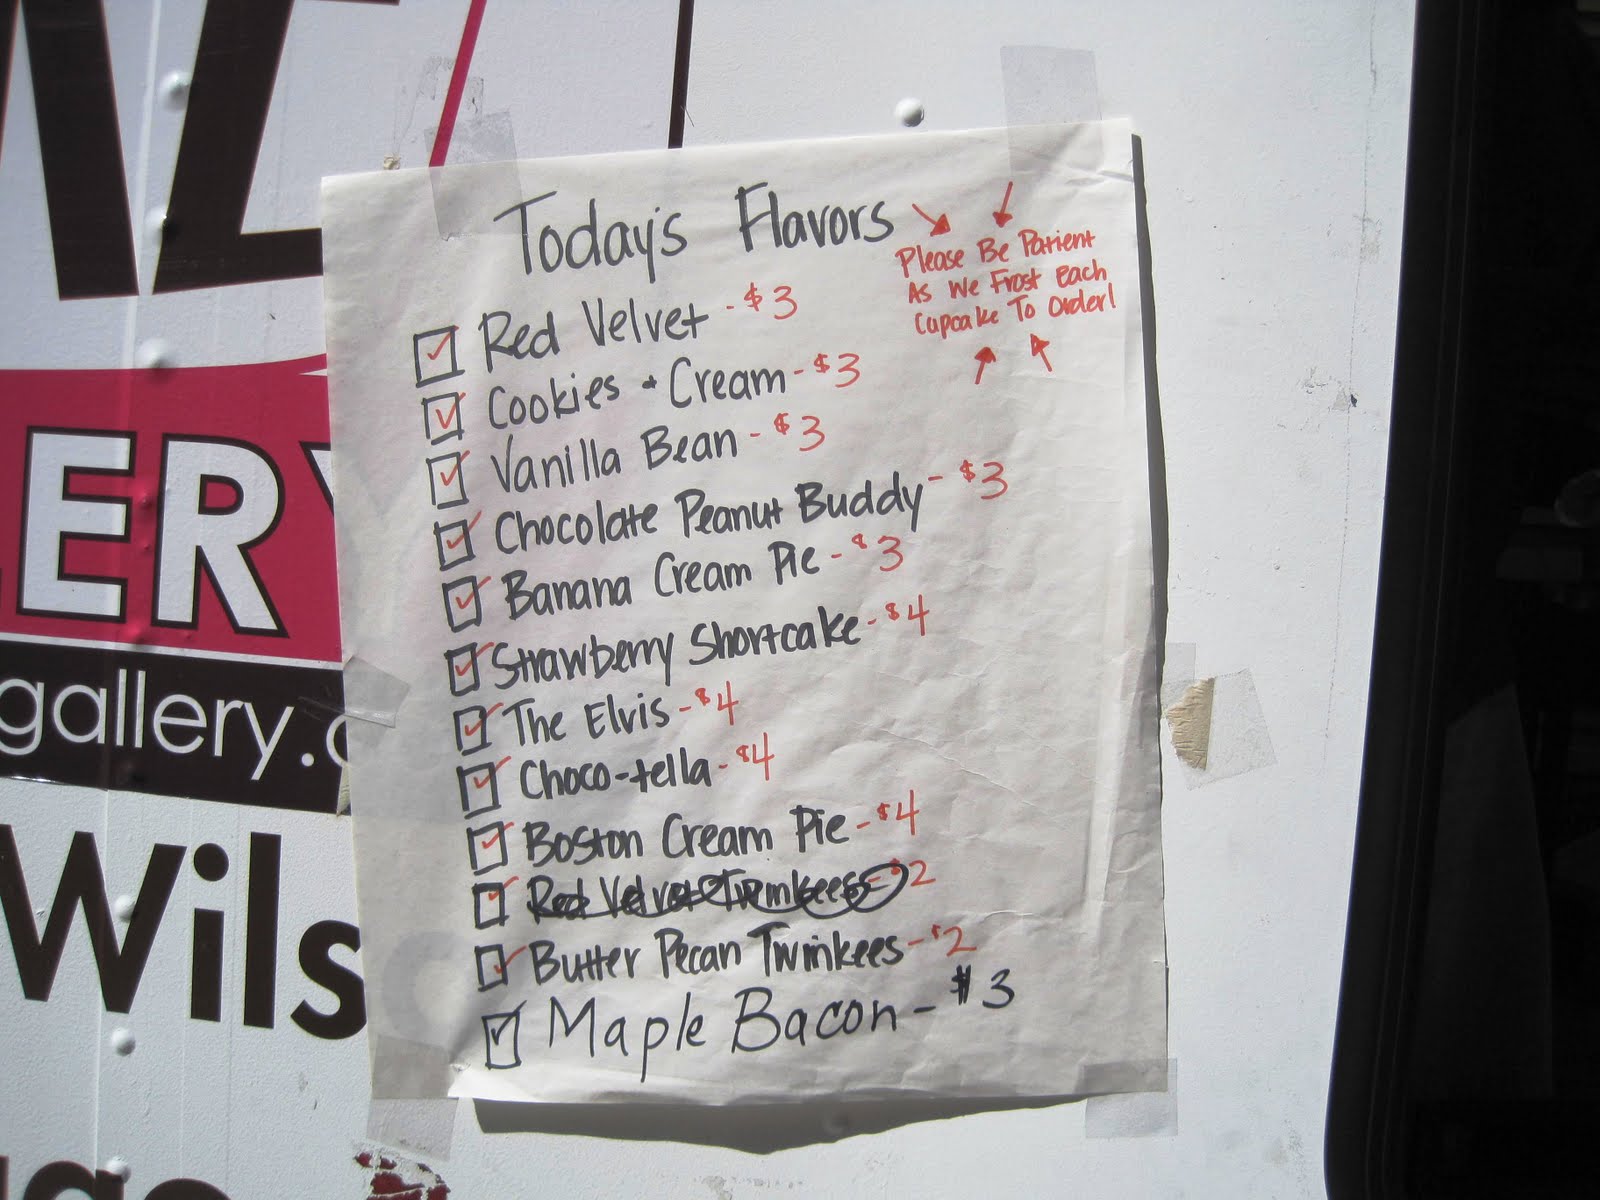 Today's Flavors
Please Be Patient
As We Frost Each
Cupcake To Order!
Red Velvet - $3
Cookies + Cream - $3
Vanilla Bean - $3
Chocolate Peanut Buddy - $3
Banana Cream Pie - $3
Strawberry Shortcake - $4
The Elvis - $4
Choco-tella - $4
Boston Cream Pie - $4
Red Velvet Twinkees - $2
Butter Pecan Twinkees - $2
Maple Bacon - $3
ERY
gallery.c
Wils